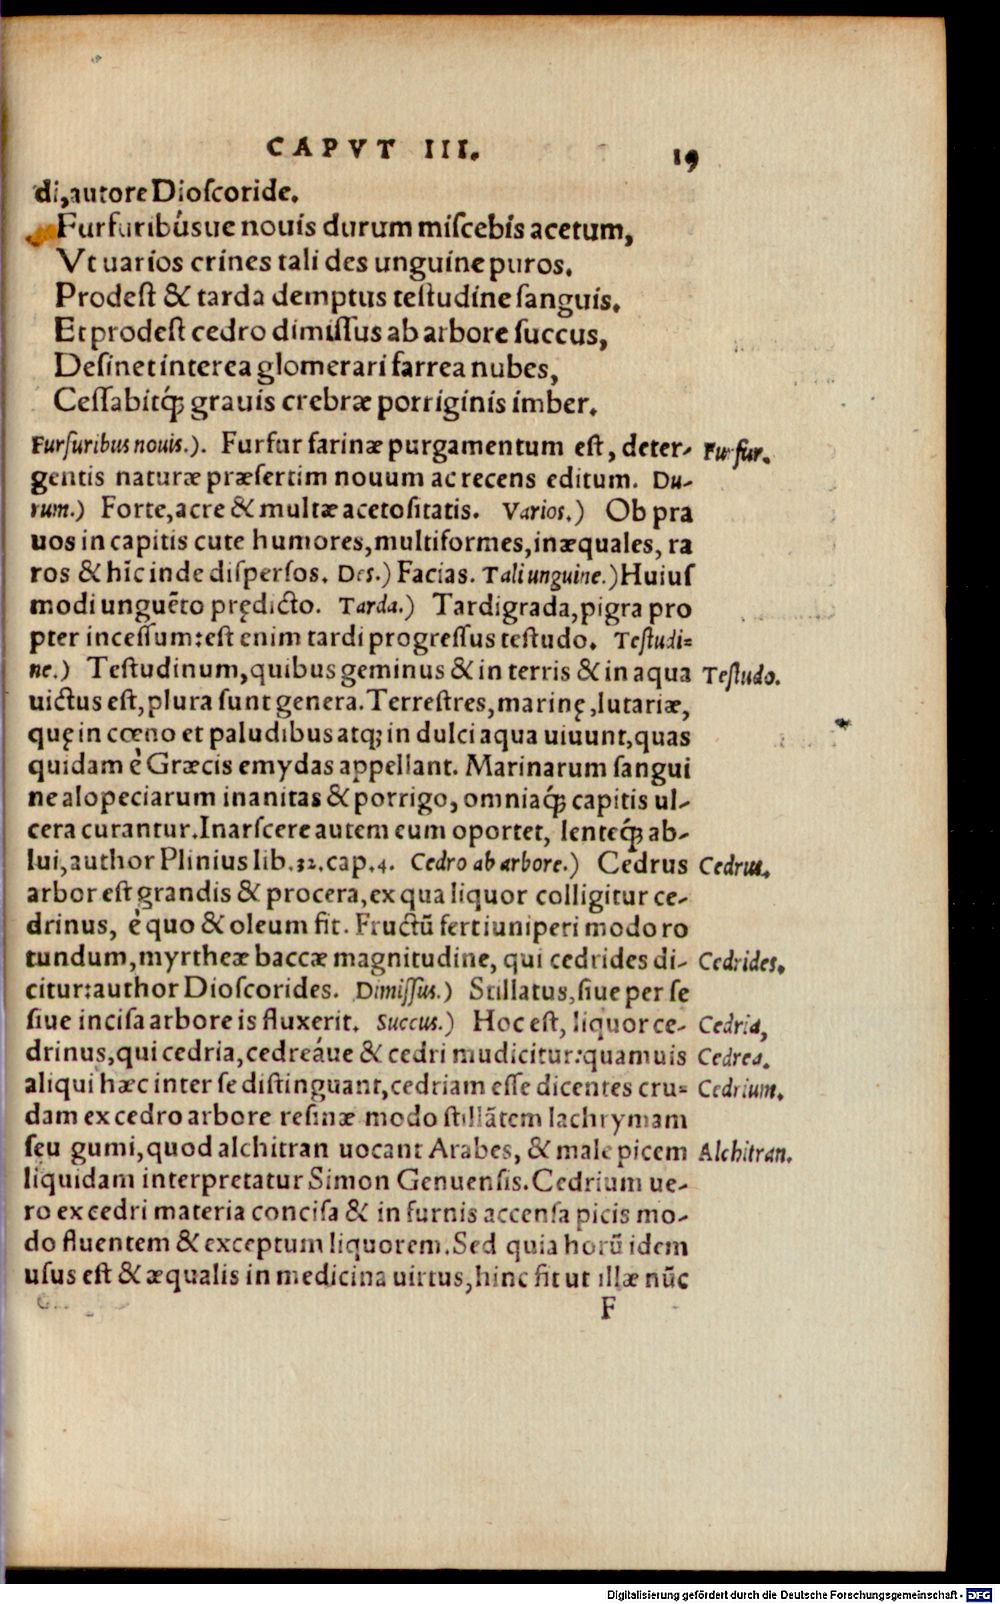 CAPVT III. 19
di, autore Dioscoride.
Furfuribúsue nouis durum miscebis acetum,
Vt uarios crines tali des unguine puros.
Prodest & tarda demptus testudine sanguis.
Et prodest cedro dimissus ab arbore succus,
Desinet interea glomerari farrea nubes,
Cessabitq́; grauis crebræ porriginis imber.
Furfuribus nouis.). Furfur farinæ purgamentum est, deter- Furfur.
gentis naturæ præsertim nouum ac recens editum. Du-
rum.) Forte, acre & multæ acetositatis. Varios.) Ob pra
uos in capitis cute humores, multiformes, inæquales, ra
ros & hīc inde dispersos. Des.) Facias. Tali unguine.) Huius
modi unguēto prędicto. Tarda.) Tardigrada, pigra pro
pter incessum: est enim tardi progressus testudo. Testudi=
ne.) Testudinum, quibus geminus & in terris & in aqua Testudo.
uictus est, plura sunt genera. Terrestres, marinę, lutariæ,
quę in cœno et paludibus atq; in dulci aqua uiuunt, quas
quidam è Græcis emydas appellant. Marinarum sangui
ne alopeciarum inanitas & porrigo, omniaq́; capitis ul-
cera curantur. Inarscere autem eum oportet, lenteq́; ab-
lui, author Plinius lib. 32. cap. 4. Cedro ab arbore.) Cedrus Cedrus.
arbor est grandis & procera, ex qua liquor colligitur ce-
drinus, è quo & oleum fit. Fructū fert iuniperi modo ro
tundum, myrtheæ baccæ magnitudine, qui cedrides di- Cedrides.
citur: author Dioscorides. Dimissus.) Stillatus, siue per se
siue incisa arbore is fluxerit. Succus.) Hoc est, liquor ce- Cedria,
drinus, qui cedria, cedreáue & cedrium dicitur: quamuis Cedrea.
aliqui hæc inter se distinguant, cedriam esse dicentes cru= Cedrium.
dam ex cedro arbore resinæ modo stillātem lachrymam
seu gumi, quod alchitran uocant Arabes, & male picem Alchitran.
liquidam interpretatur Simon Genuensis. Cedrium ue-
ro ex cedri materia concisa & in furnis accensa picis mo-
do fluentem & exceptum liquorem. Sed quia horū idem
usus est & æqualis in medicina uirtus, hinc fit ut illæ nūc
F
Digitalisierung gefördert durch die Deutsche Forschungsgemeinschaft - DFG